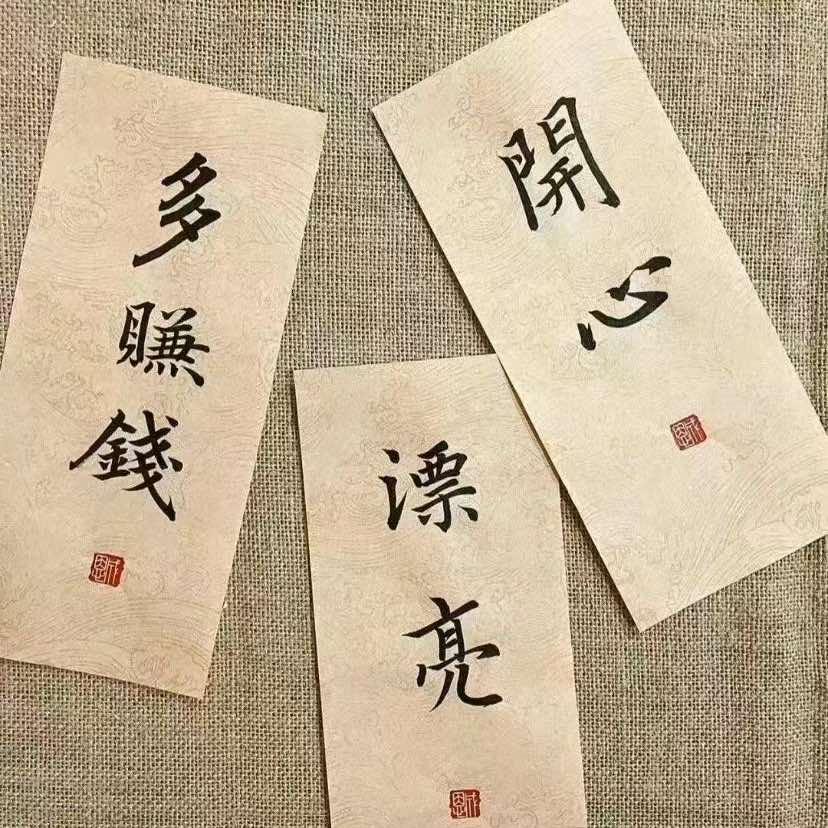 多賺錢
漂亮
開心